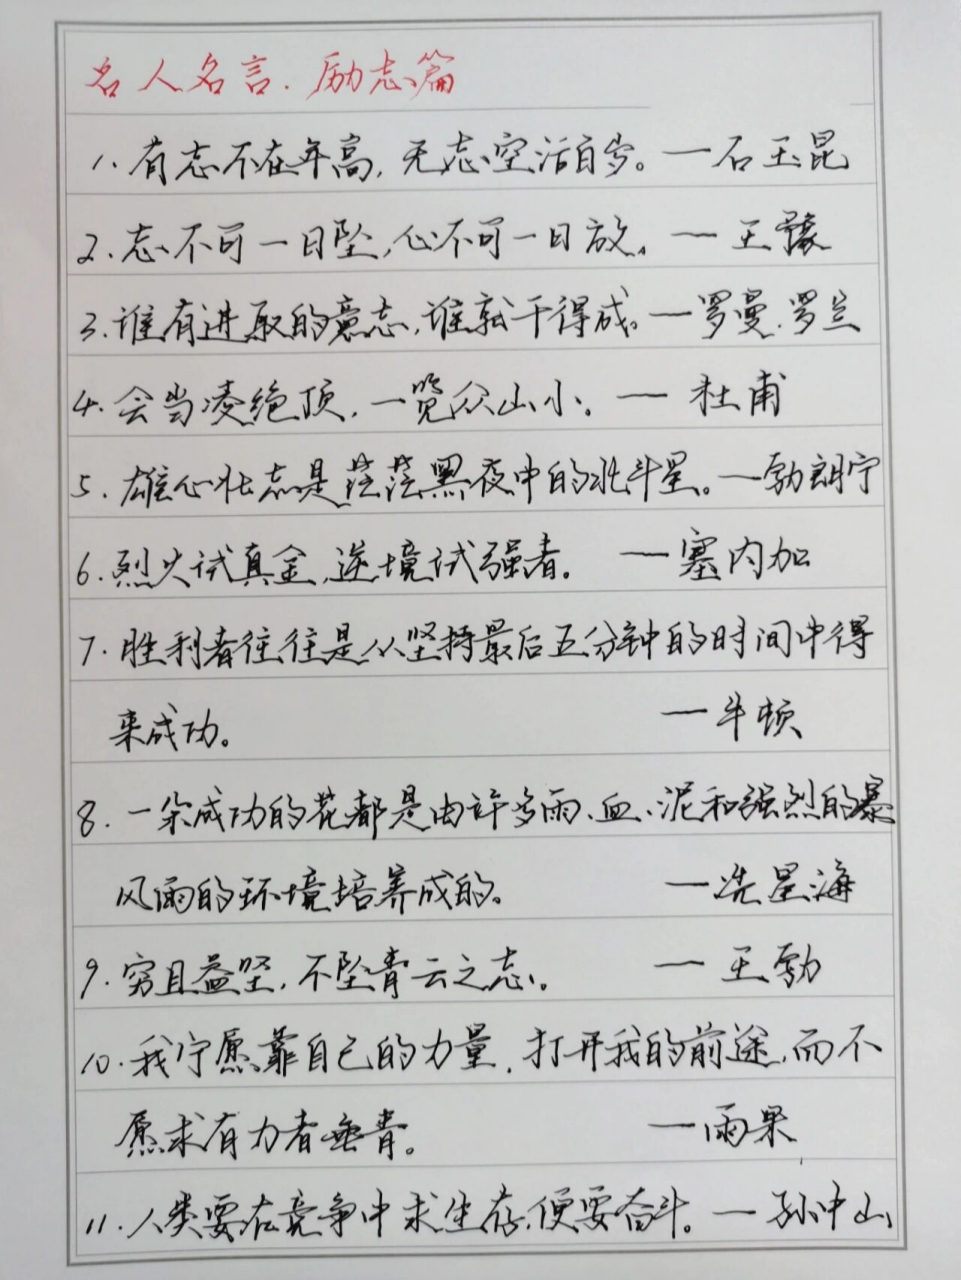 名人名言.励志篇
1.有志不在年高,无志空活百岁。—石玉昆
2.志不可一日坠,心不可一日放。—王豫
3.谁有进取的意志,谁就干得成。—罗曼.罗兰
4.会当凌绝顶,一览众山小。—杜甫
5.雄心壮志是茫茫黑夜中的北斗星。—勃朗宁
6.烈火试真金,逆境试强者。—塞内加
7.胜利者往往是从坚持最后五分钟的时间中得
来成功。—牛顿
8.一朵成功的花都是由许多雨、血、泥和强烈的暴
风雨的环境培养成的。—冼星海
9.穷且益坚,不坠青云之志。—王勃
10.我宁愿靠自己的力量,打开我的前途,而不
愿求有力者垂青。—雨果
11.人类要在竞争中求生存,便要奋斗。—孙中山